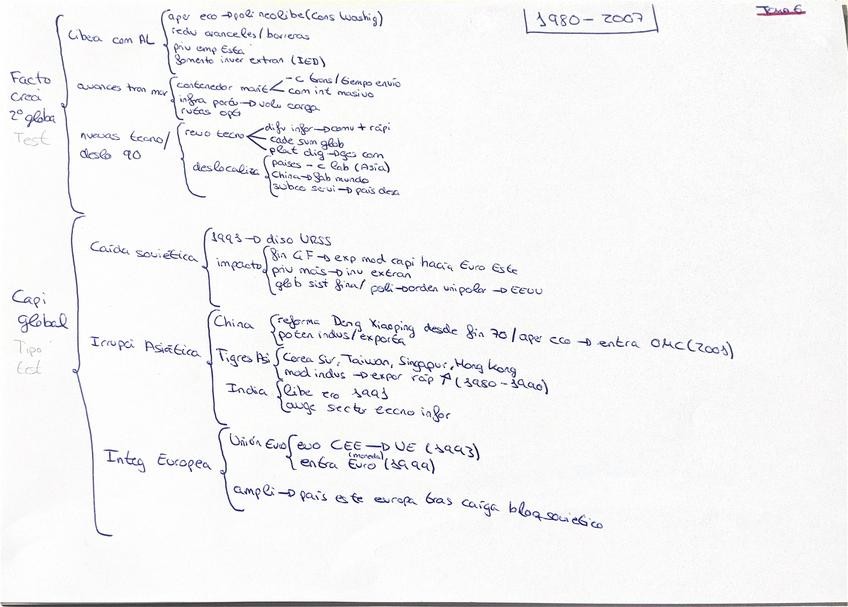 1980-2007
Tema 6
Facto
crea
2º globa
Test
Libea com AL
aper eco→poli neolibe (Cons Washig)
redu aranceles/barreras
priv emp Esta
fomento inver extran (IED)
avances tran mar
contenedor marít
-c trans/tiempo envío
com int masivo
infra porár→volu carga
rutas opti
nuevas tecno/
deslo 90
revo tecno
difu infor→comu + rápi
cade sum glob
plat dig→ges com
deslocaliza
países - c lab (Asia)
China→fab mundo
subco servi→país desa
Capi
global
Tipo
test
Caída soviética
1991→diso URSS
impacto
fin GF→exp mod capi hacia Euro Este
priv mais→inv extran
glob sist fina/poli→orden unipolar→EEUU
Irrupci Asiática
China
reforma Deng Xiaoping desde fin 70/aper eco→entra OMC(2001)
poten indus/exporta
Tigres Asi
Corea Sur, Taiwan, Singapur, Hong Kong
mod indus→expor ráp ↗ (1980-1990)
India
libe eco 1991
auge sector tecno infor
Integ Europea
Unión Euro
evo CEE→UE (1993)
(moneda)
entra Euro (1999)
ampli→país este europa tras caíga bloq soviético